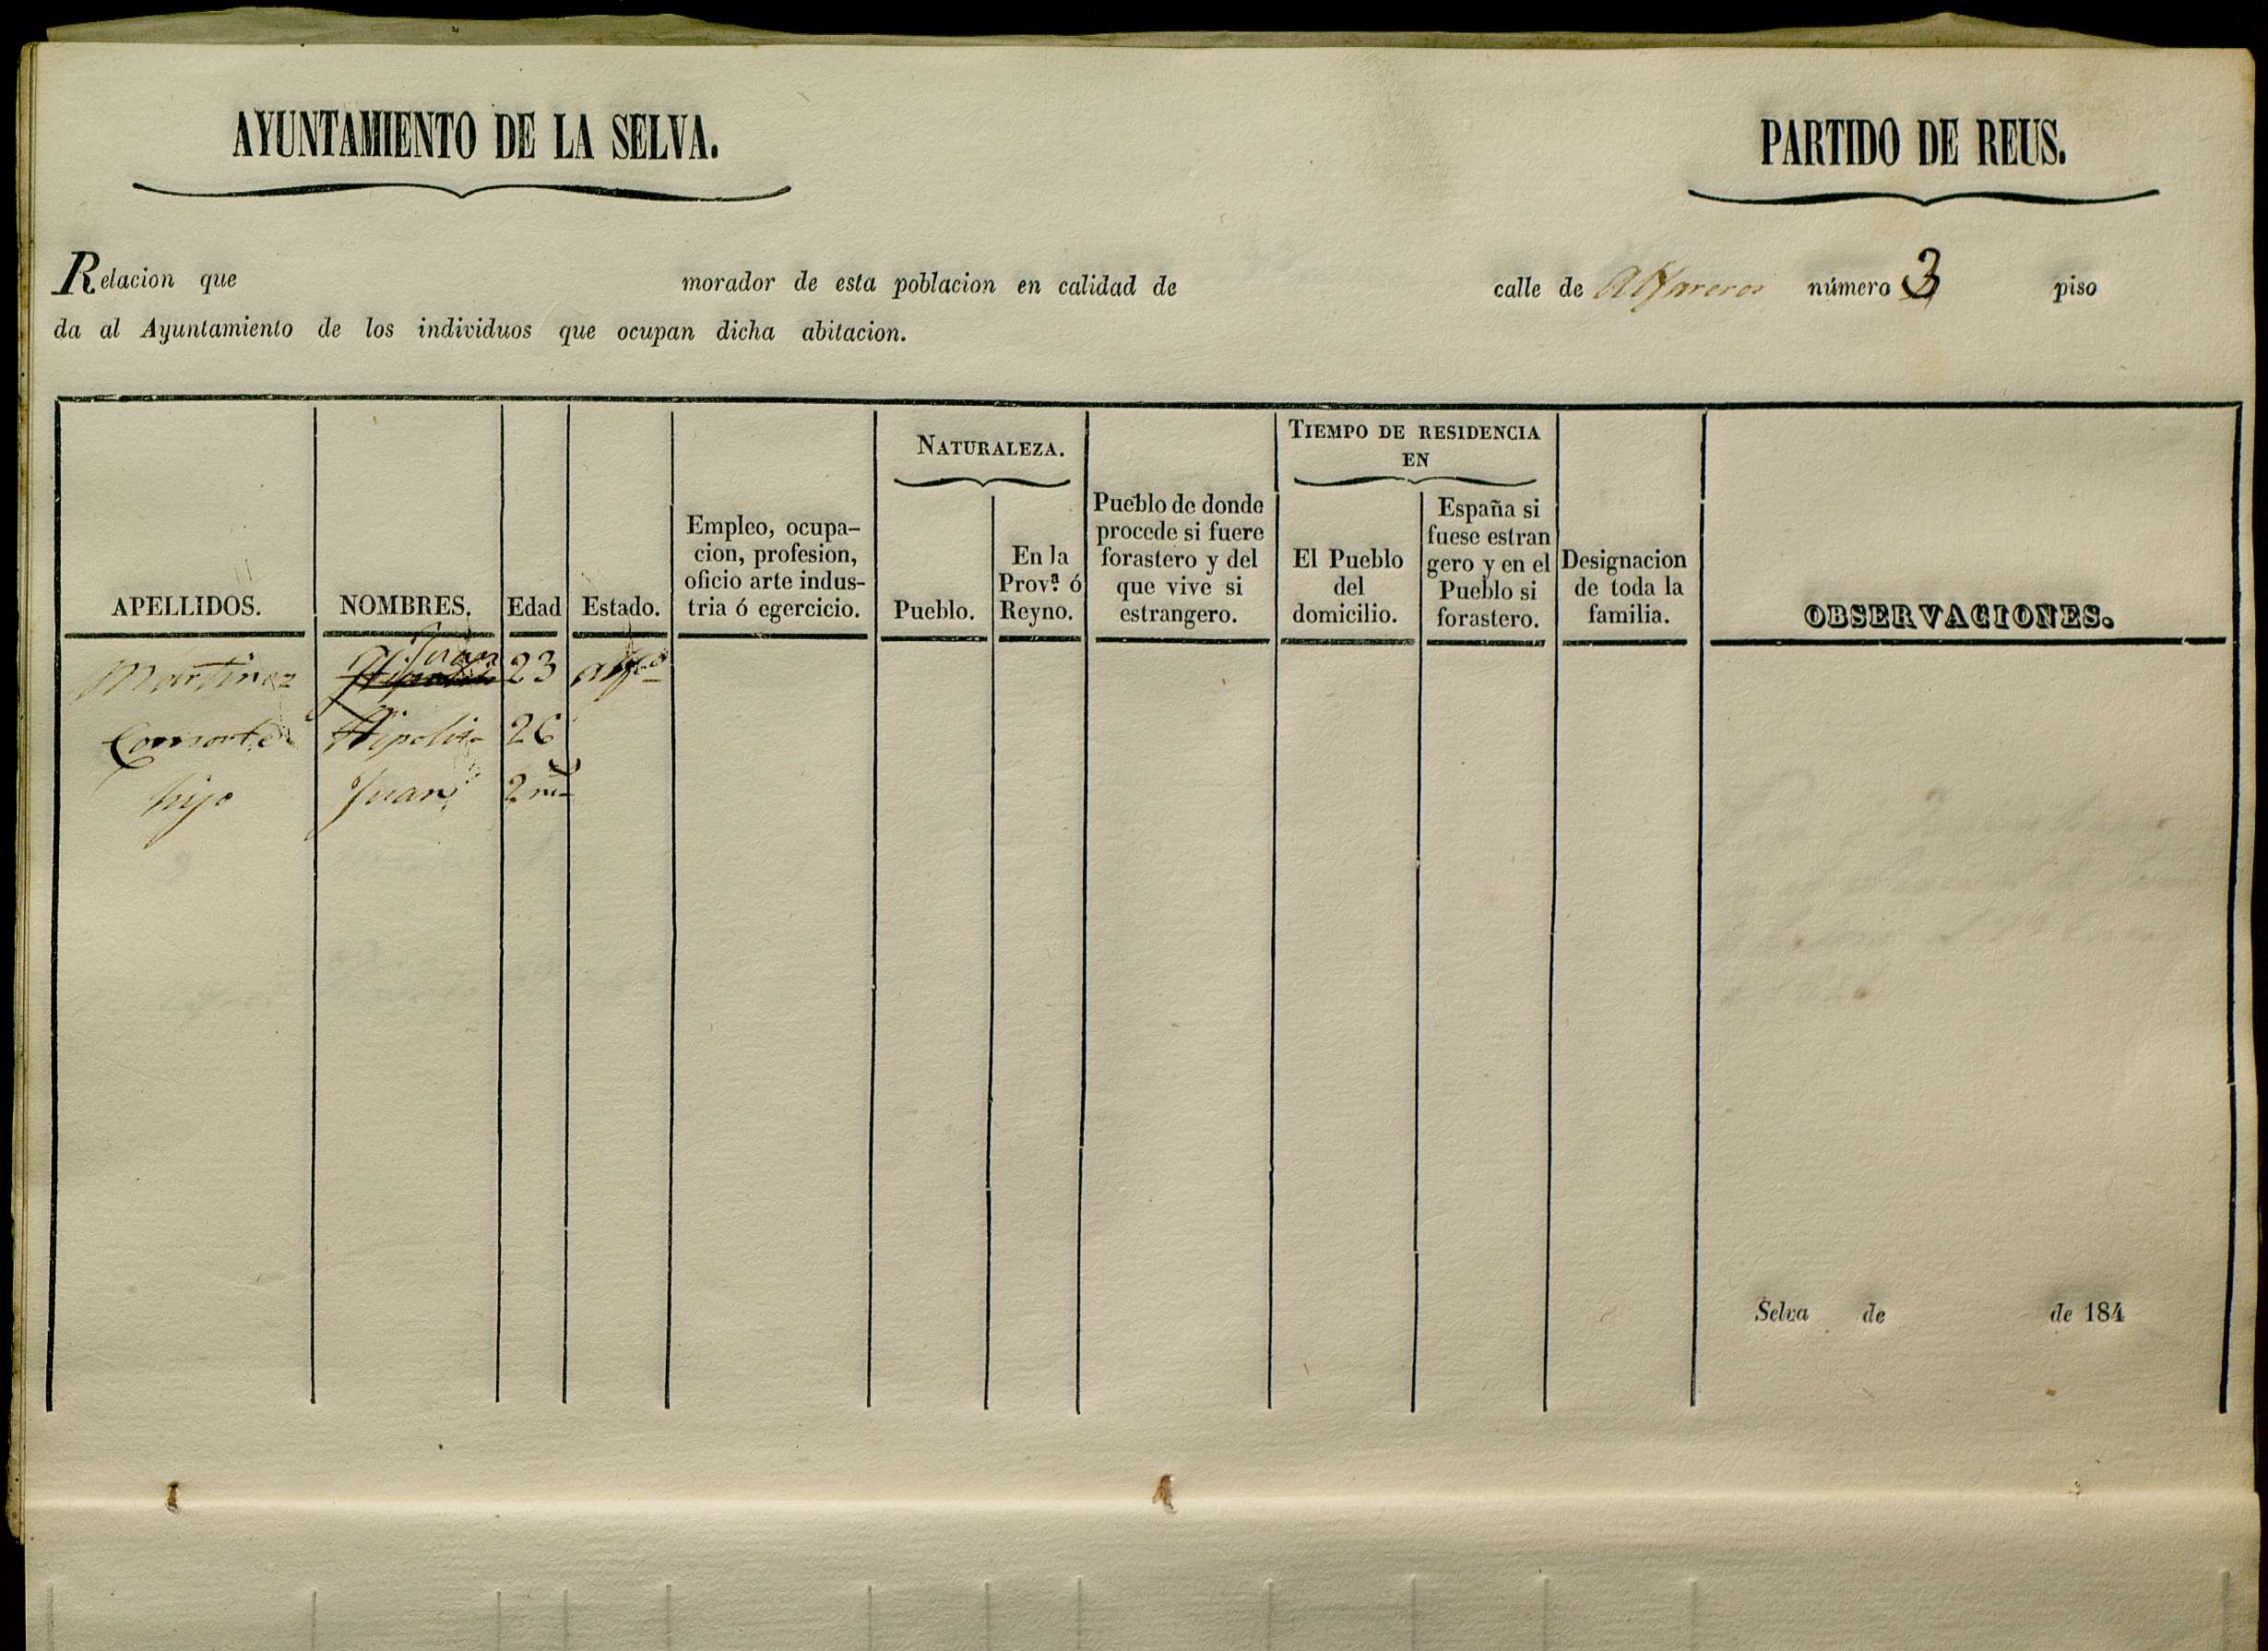 AYUNTAMIENTO DE LA SELVA.
PARTIDO DE REUS.
Relacion que morador de esta poblacion en calidad de calle de Alfareros número 3 piso
da al Ayuntamiento de los individuos que ocupan dicha abitacion.
APELLIDOS.
NOMBRES.
Edad
Estado.
Empleo, ocupa-
cion, profesion,
oficio arte indus-
tria ó egercicio.
NATURALEZA.
Pueblo.
En la
Prov.ª ó
Reyno.
Pueblo de donde
procede si fuere
forastero y del
que vive si
estrangero.
TIEMPO DE RESIDENCIA
EN
El Pueblo
del
domicilio.
España si
fuese estran
gero y en el
Pueblo si
forastero.
Designacion
de toda la
familia.
OBSERVACIONES.
Martinez Juan 23 alf.º
Consorte Hipolita 26
hijo Juan 2 m.s
Selva de de 184